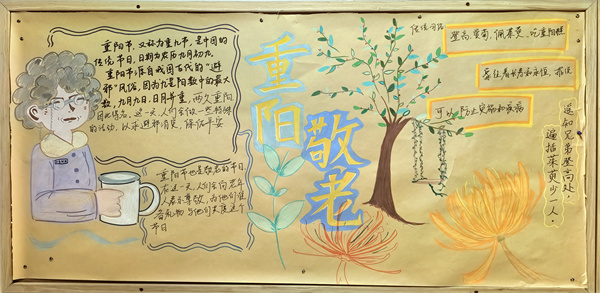 重阳节，又称为重九节，是中国的
传统节日，日期为农历九月初九。
重阳节，源自我国古代的“避
邪”风俗，因为九是阳数中的最大
数，九月九日，日月并重，两九重阳
因此得名。这一天，人们会做一些特殊
的活动，以求避邪消灾，保佑平安
重阳节也是敬老的节日
在这一天，人们会向老年
人表示尊敬，为他们准
备礼物，与他们共度这个
节日
重阳
敬老
传统习俗
登高，赏菊，佩茱萸，吃重阳糕
可以防止灾祸和疾病
遥知兄弟登高处，
遍插茱萸少一人。